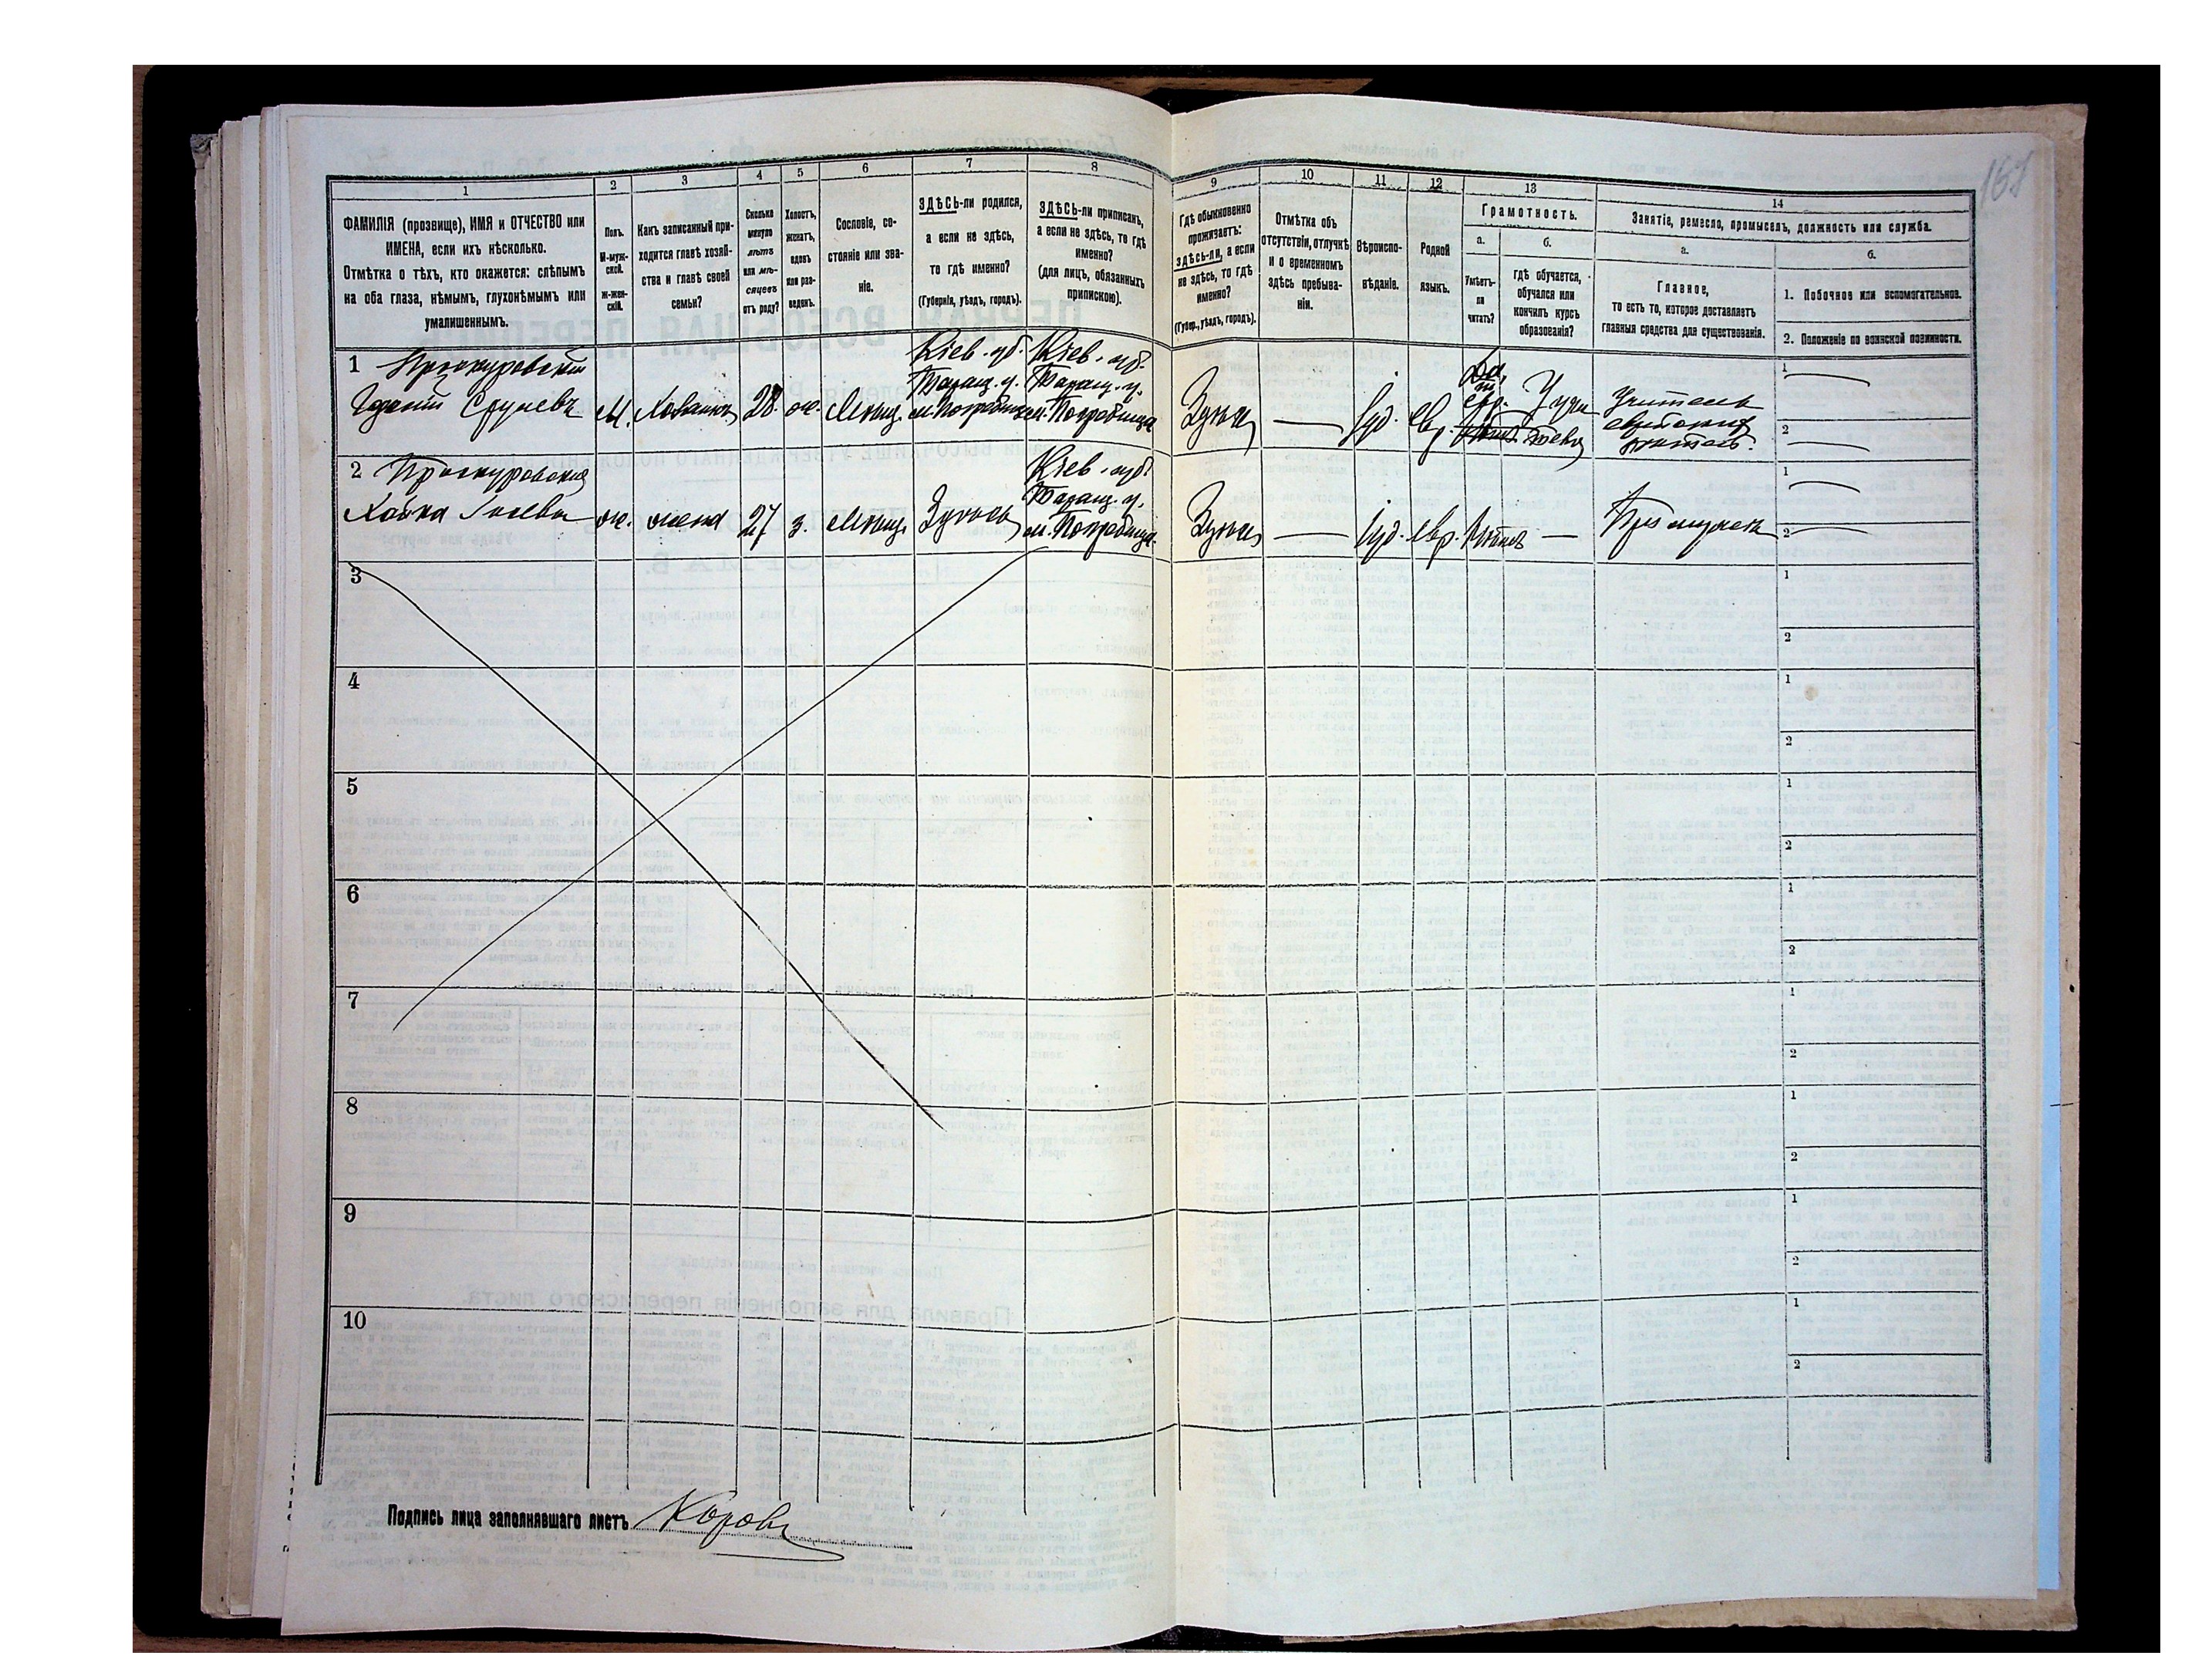 167
1
2
3
4
5
6
7
8
9
10
11
12
13
14
ФАМИЛІЯ (прозвище), ИМЯ и ОТЧЕСТВО или
ИМЕНА, если ихъ нѣсколько.
Отмѣтка о тѣхъ, кто окажется: слѣпымъ
на оба глаза, нѣмымъ, глухонѣмымъ или
умалишеннымъ.
Полъ.
М-муж-
ской.
Ж-жен-
скій.
Какъ записанный при-
ходится главѣ хозяй-
ства и главѣ своей
семьи?
Сколько
минуло
лѣтъ
или мѣ-
сяцевъ
отъ роду?
Холостъ,
женатъ,
вдовъ
или раз-
веденъ.
Сословіе, со-
стояніе или зва-
ніе.
ЗДѢСЬ-ли родился,
а если не здѣсь,
то гдѣ именно?
(Губернія, уѣздъ, городъ).
ЗДѢСЬ-ли приписанъ,
а если не здѣсь, то гдѣ
именно?
(для лицъ, обязанныхъ
припискою).
Гдѣ обыкновенно
проживаетъ:
здѣсь-ли, а если
не здѣсь, то гдѣ
именно?
(Губер., уѣздъ, городъ).
Отмѣтка объ
отсутствіи, отлучкѣ
и о временномъ
здѣсь пребыва-
ніи.
Вѣроиспо-
вѣданіе.
Родной
языкъ.
Грамотность.
а.
б.
Умѣетъ-
ли
читать?
гдѣ обучается,
обучался или
кончилъ курсъ
образованія?
Занятіе, ремесло, промыселъ, должность или служба.
а.
б.
Главное,
то есть то, которое доставляетъ
главныя средства для существованія.
1. Побочное или вспомогательное.
2. Положеніе по воинской повинности.
1 Проскуровскій
Срулевъ М. Хозяинъ 28. ж. Мѣщ.
Кіев. губ.
Таращ. у.
м. Погребище
Кіев. губ.
Таращ. у.
м. Погребище
Здѣсь — Іуд. Евр.
Да,
евр.
Учитель
еврейскихъ
1
2
2 Проскуровская
Хайка ж. жена 27 з. Мѣщ. Здѣсь
Кіев. губ.
Таращ. у.
м. Погребище
Здѣсь — Іуд. Евр. Нѣтъ — При мужѣ
1
2
3
1
2
4
1
2
5
1
2
6
1
2
7
1
2
8
1
2
9
1
2
10
1
2
Подпись лица заполнявшаго листъ